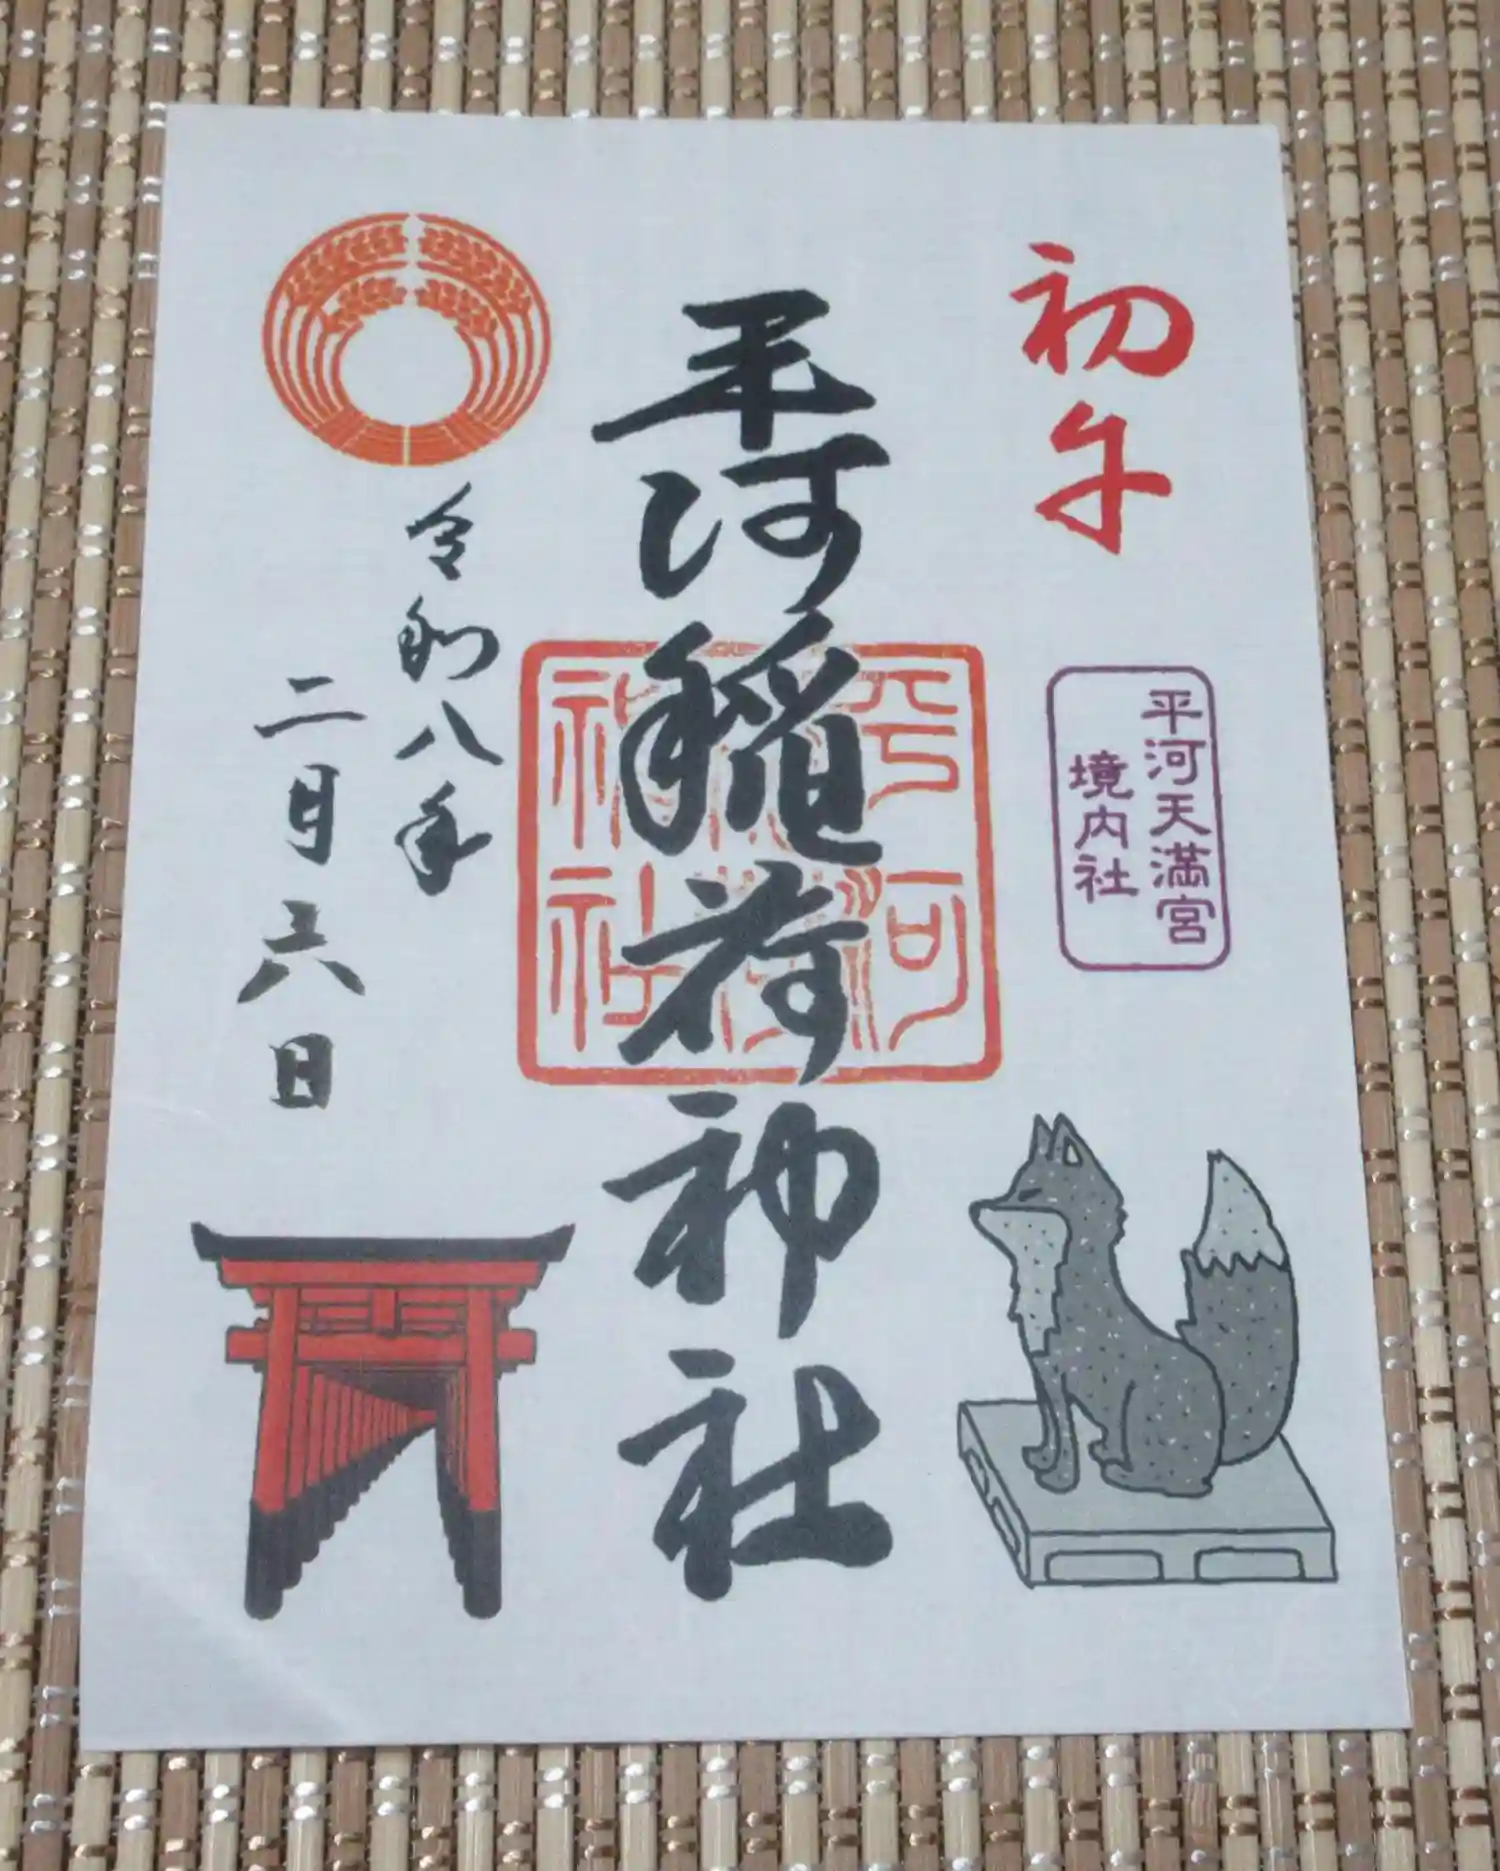 初午
平河天満宮
境内社
平河稲荷神社
平河
神社
令和八年
二月六日